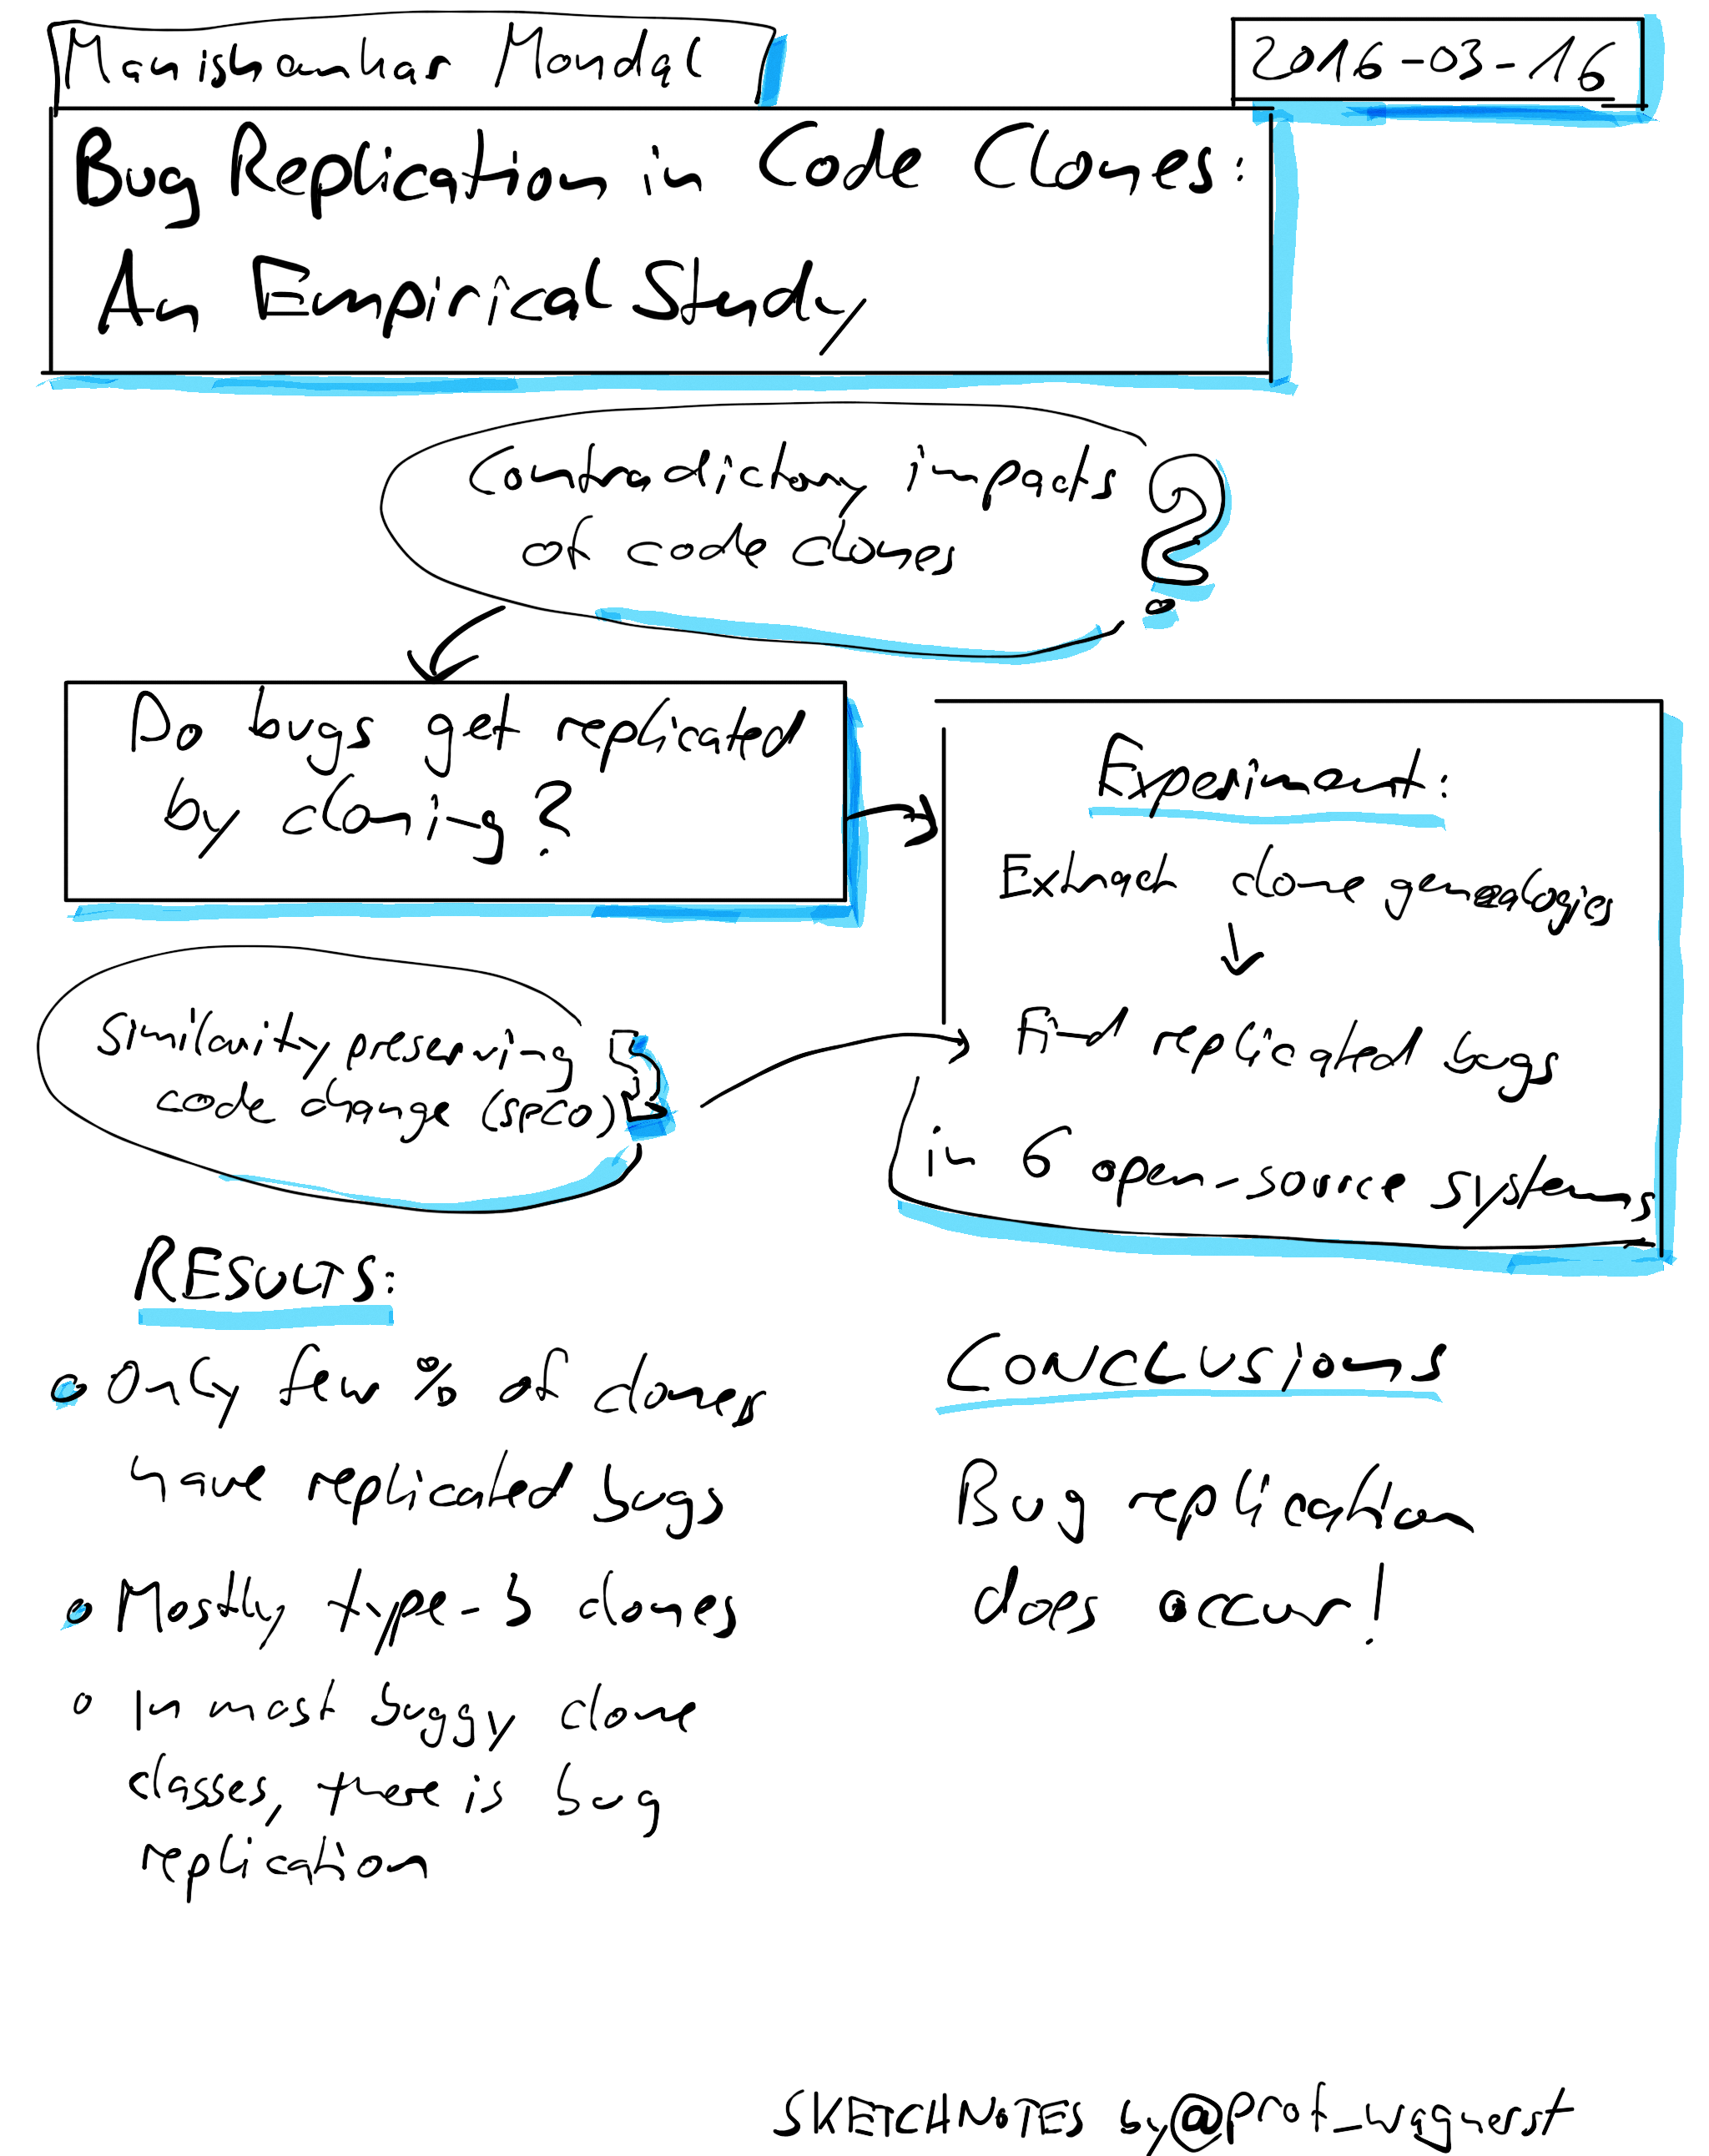 Manishankar Mondal
2016-03-16
Bug Replication in Code Clones:
An Empirical Study
Contradictory impacts
of code clones
?
Do bugs get replicated
by cloning?
Experiment:
Extract clone genealogies
Find replicated bugs
in 6 open-source systems
Similarity preserving
code change (SPCO)
RESULTS:
Only few % of clones
have replicated bugs
Mostly type-3 clones
In most buggy clone
classes, there is bug
replication
CONCLUSIONS
Bug replication
does occur!
SKETCHNOTES by @prof_wagnerst